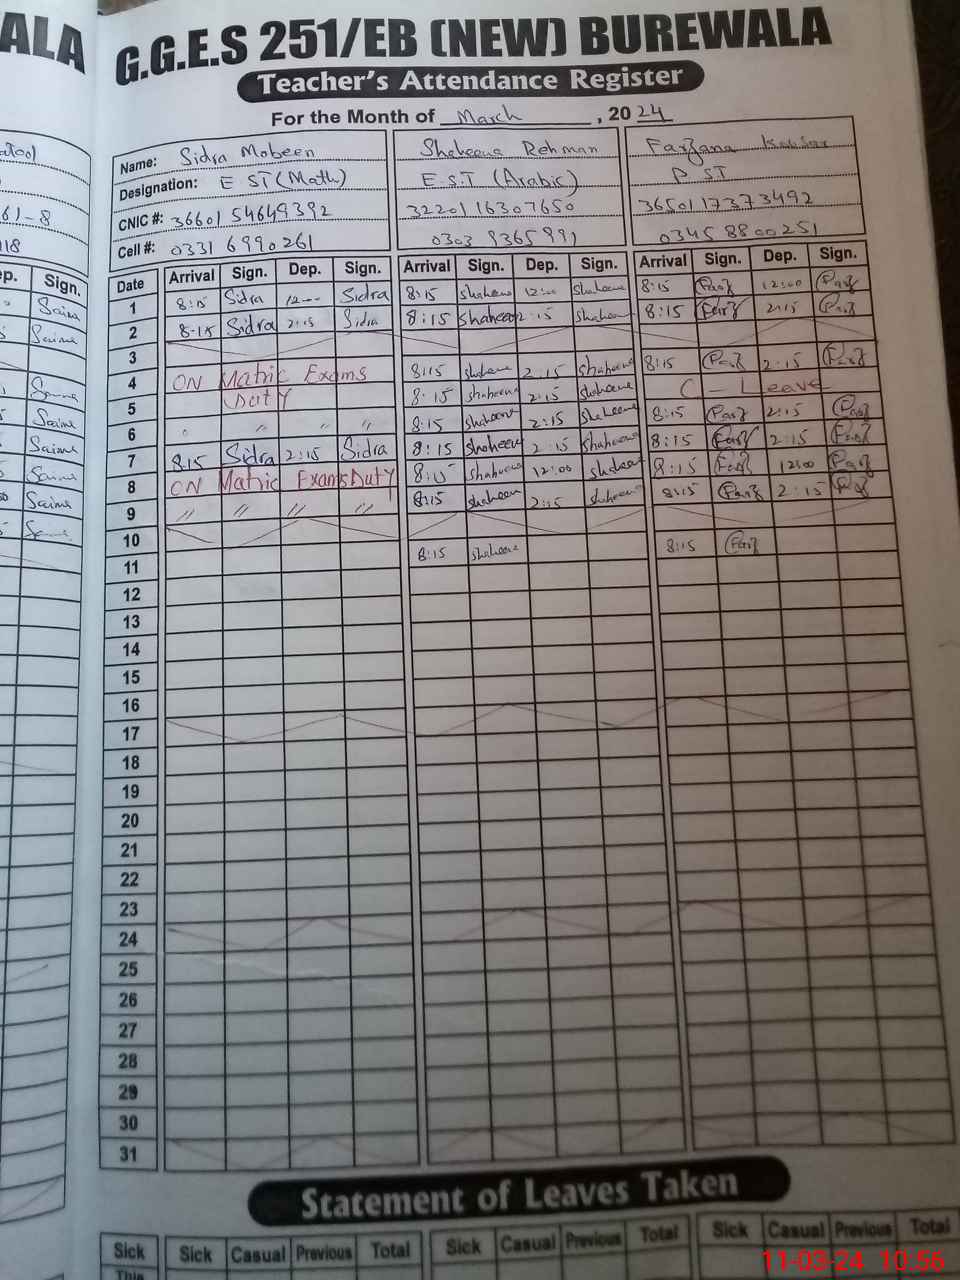 ALA
G.G.E.S 251/EB (NEW) BUREWALA
Teacher's Attendance Register
For the Month of March, 2024
Name: Sidra Mobeen Shaheena Rehman Farzana Kausar
Designation: E ST (Math) E.S.T (Arabic) P ST
CNIC #: 36601 54649392 32201 16307650 36501 17373492
Cell #: 0331 6990261 0303 9365991 0345 8800251
61-8
118
ep. Sign.
Date Arrival Sign. Dep. Sign. Arrival Sign. Dep. Sign. Arrival Sign. Dep. Sign.
1 8:15 Sidra 12-- Sidra 8:15 shaheena 12:00 shaheena 8:15 Farz 12:00 Farz
2 8-15 Sidra 2:15 Sidra 8:15 shaheena 2:15 shaheena 8:15 Farz 2:15 Farz
3
4 ON Matric Exams 8:15 shaheena 2:15 shaheena 8:15 Farz 2:15 Farz
5 Duty 8:15 shaheena 2:15 shaheena C Leave
6 " " " " 8:15 shaheena 2:15 shaheena 8:15 Farz 2:15 Farz
7 8:15 Sidra 2:15 Sidra 8:15 shaheena 2:15 shaheena 8:15 Farz 2:15 Farz
8 ON Matric Exams Duty 8:15 shaheena 12:00 shaheena 8:15 Farz 12:00 Farz
9 " " " " 8:15 shaheena 2:15 shaheena 8:15 Farz 2:15 Farz
10
11 8:15 shaheena 8:15 Farz
12
13
14
15
16
17
18
19
20
21
22
23
24
25
26
27
28
29
30
31
Statement of Leaves Taken
Sick Sick Casual Previous Total Sick Casual Previous Total Sick Casual Previous Total
This
11-03-24 10:56